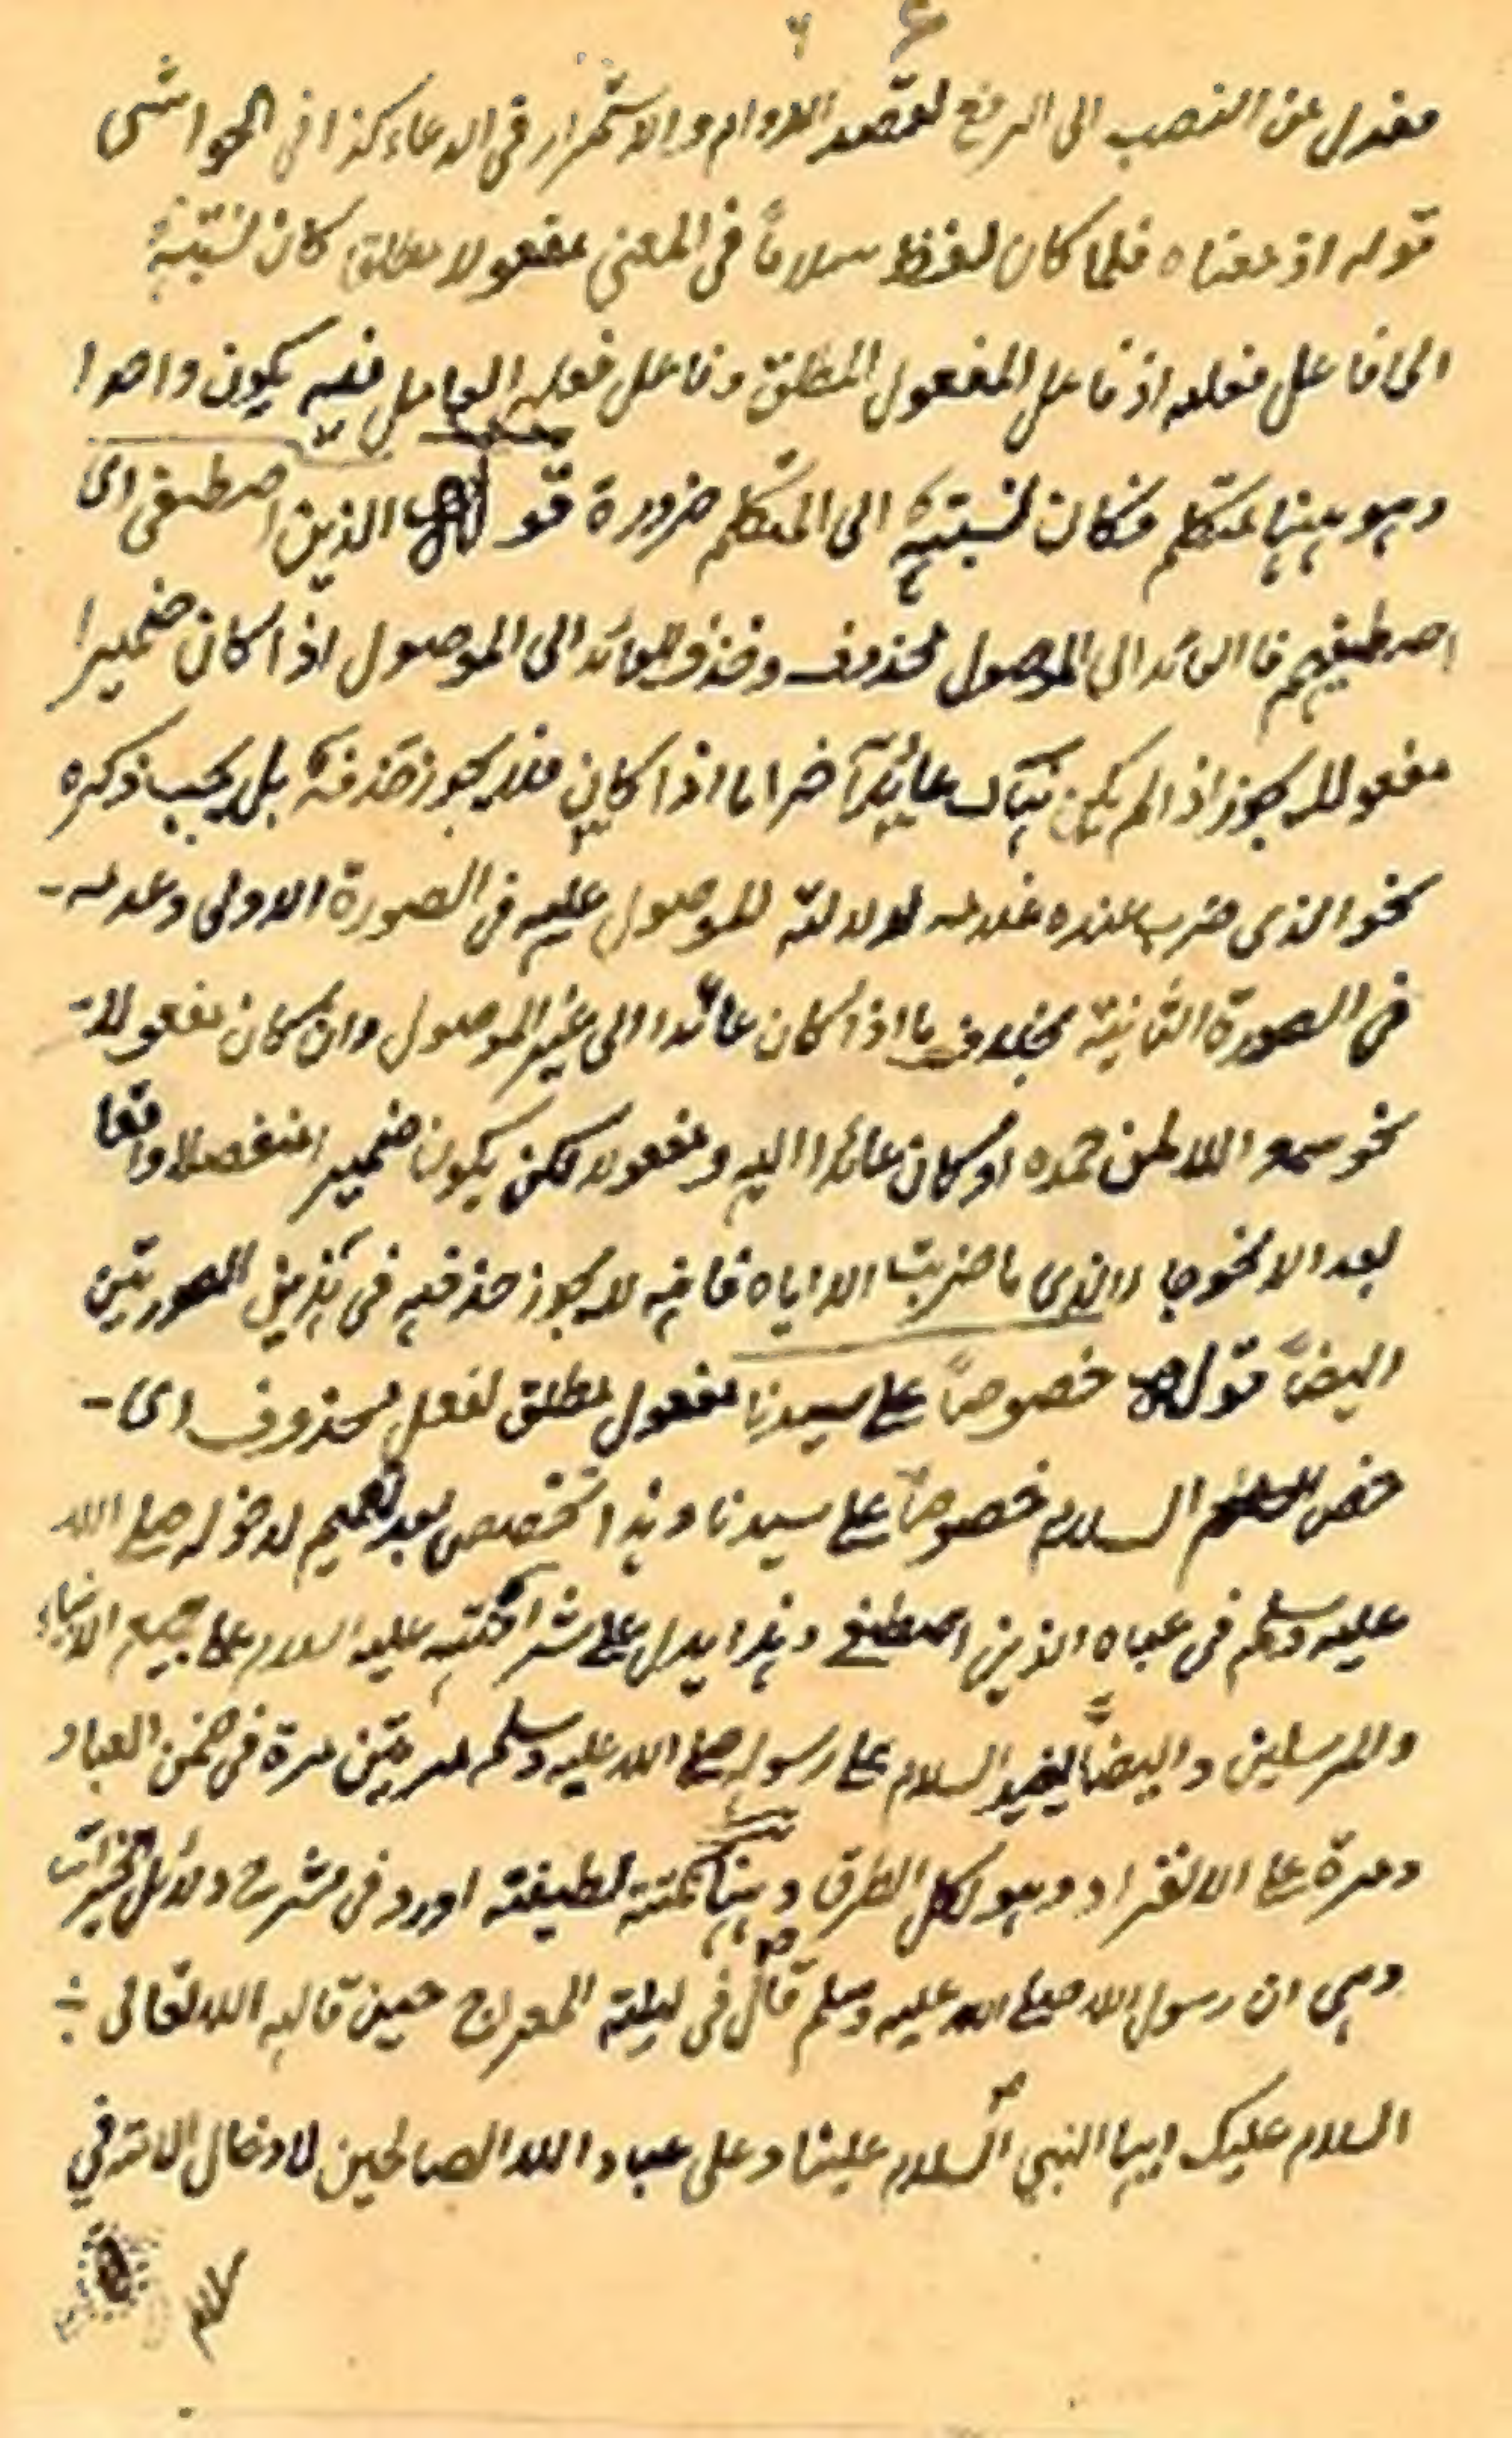 فعدل عن النصب الى الرفع لقصد الدوام والاستمرار فى الدعاء كذا فى الحواشى
قوله اذ معناه فلما كان لفظ سلاماً فى المعنى مفعولا مطلق كان نسبته
الى فاعل فعله اذ فاعل المفعول المطلق وفاعل فعله العامل فيه يكون واحدا
وهو ههنا متكلم فكان نسبته الى المتكلم ضرورة قوله الذين اصطفى اى
اصطفيهم فالعائد الى الموصول محذوف وحذف العائد الى الموصول اذا كان ضميرا
مفعولا يجوز اذا لم يكن هناك عائداً آخر اما اذا كان فلا يجوز حذفه بل يجب ذكره
نحو الذى ضرب عنده غلامه لدلالته الموصول عليه فى الصورة الاولى وعدمه
فى الصورة الثانية بخلاف ما اذا كان عائدا الى غير الموصول وان كان مفعولا
نحو سمع الله لمن حمده او كان عائدا اليه ومفعولا لكن يكون ضميرا منفصلا واقعا
بعد الا نحو جا الذى ما ضربت الا اياه فانه لا يجوز حذفه فى هذين الصورتين
ايضاً قوله خصوصاً على سيدنا مفعول مطلق لفعل محذوف اى
خص السلام خصوصاً على سيدنا وهذا تخصيص بعد تعميم لدخوله صلى الله
عليه وسلم فى عباه الذين اصطفى وهذا يدل على شرافته عليه السلام على جميع الانبياء
والمرسلين وايضاً يفيد السلام على رسوله صلى الله عليه وسلم مرتين مرة فى ضمن العباد
ومرة على الانفراد وهو لكل الطرق وههنا نكتة لطيفة اورد فى شرح دلائل الخيرات
وهى ان رسول الله صلى الله عليه وسلم قال فى ليلة المعراج حين قال له الله تعالى
السلام عليك ايها النبي السلام علينا وعلى عباد الله الصالحين لادخال الامة في